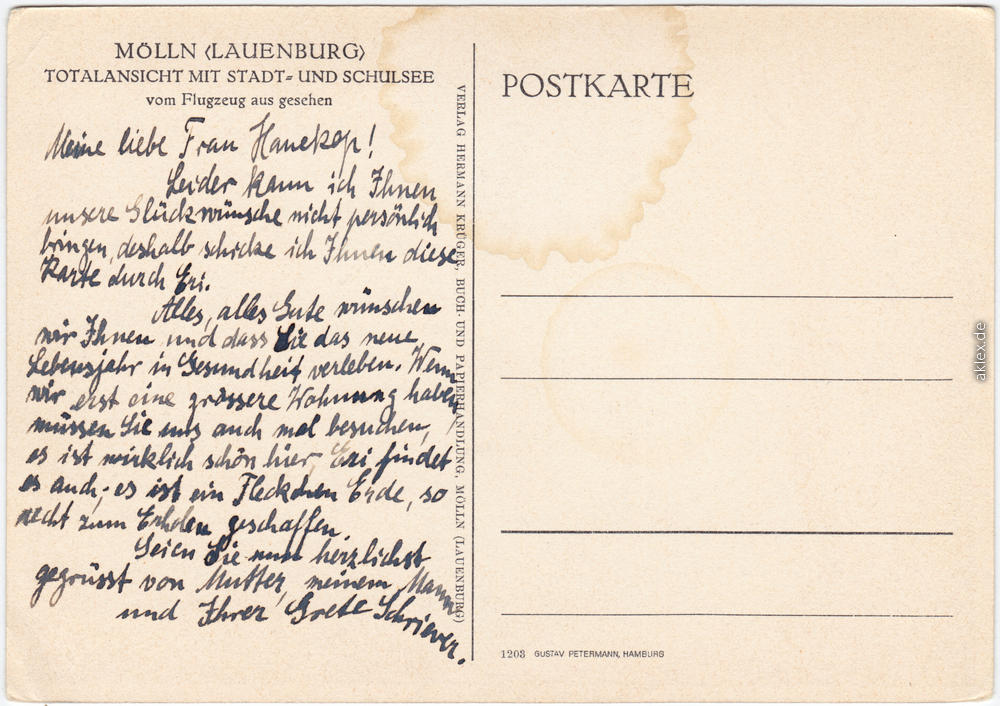 MÖLLN (LAUENBURG)
TOTALANSICHT MIT STADT- UND SCHULSEE
vom Flugzeug aus gesehen
Meine liebe Frau Hanekop!
Leider kann ich Ihnen
unsere Glückwünsche nicht persönlich
bringen, deshalb schicke ich Ihnen diese
Karte durch Eri.
Alles, alles Gute wünschen
wir Ihnen und dass Sie das neue
Lebensjahr in Gesundheit verleben. Wenn
wir erst eine grössere Wohnung haben,
müssen Sie uns auch mal besuchen,
es ist wirklich schön hier, Eri findet
es auch; es ist ein Fleckchen Erde, so
recht zum Erholen geschaffen.
Seien Sie nun herzlichst
gegrüsst von Mutter, meinem Mann
und Ihrer Grete Schriever.
VERLAG HERMANN KRÜGER, BUCH- UND PAPIERHANDLUNG, MÖLLN (LAUENBURG)
POSTKARTE
1203 GUSTAV PETERMANN, HAMBURG
aklex.de